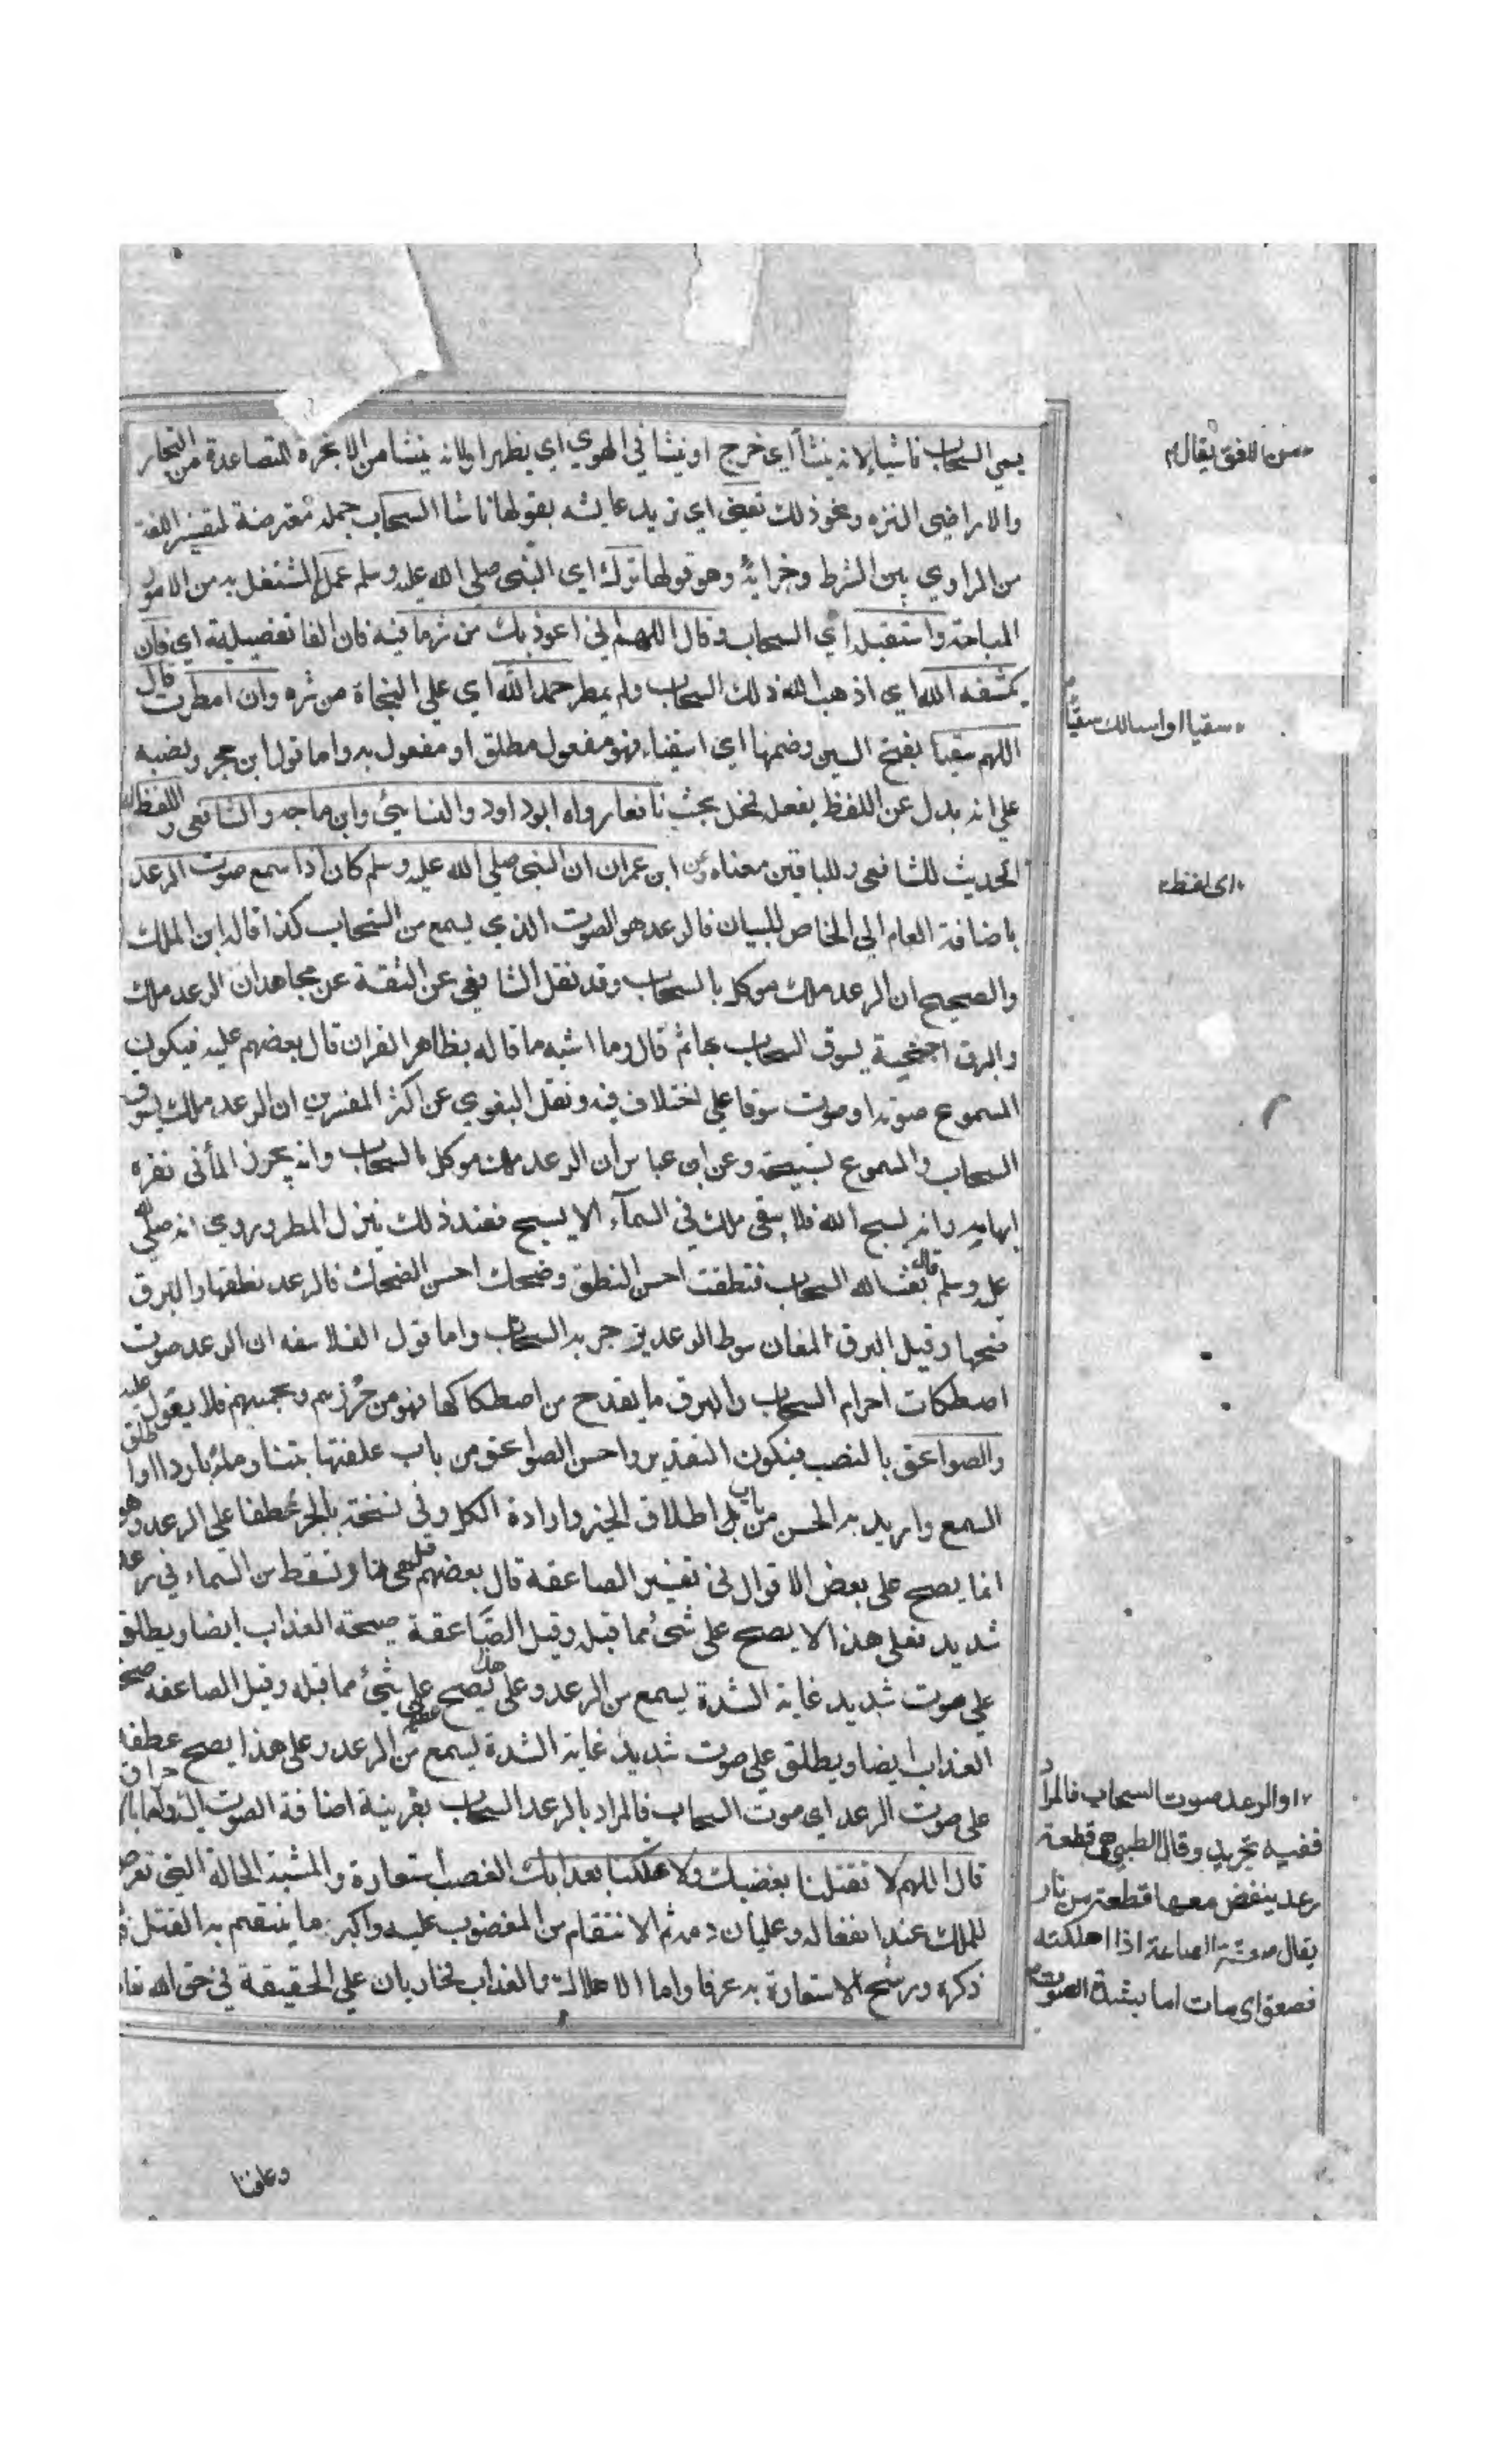 يسمي السحاب ناشيا لانه ينشأ اي خرج او ينشا في الهوي اي يظهر او لانه ينشا من الابخرة المتصاعدة من البحار
والاراضي النزه ونحو ذلك تعني اي تريد عايشه بقولها ناشا السحاب جمله معترضة لتفسير اللغة
من الراوي بين الشرط وجزايه وهو قولها ترك اي النبي صلي الله عليه وسلم عمله المشتغل به من الامور
المباحة واستقبله اي السحاب وقال اللهم اني اعوذ بك من شر ما فيه فان الفا تفصيلية اي فان
كشفه الله اي اذهب الله ذلك السحاب ولم يمطر حمد الله اي علي النجاة من شره وان امطرت قال
اللهم سقيا بفتح السين وضمها اي اسقينا فهو مفعول مطلق او مفعول به واما قول ابن حجر ونصبه
علي انه بدل عن اللفظ بفعله فحل بحث نافعا رواه ابو داود والنسايئ وابن ماجه والشافعي واللفظ
الحديث للشافعي وللباقين معناه وعن ابن عمران ان النبي صلي الله عليه وسلم كان اذا سمع صوت الرعد
باضافة العام الي الخاص للبيان فالرعد هو الصوت الذي يسمع من السحاب كذا قاله ابن الملك
والصحيح ان الرعد ملك موكل بالسحاب وقد نقل الشافعي عن الثقة عن مجاهد ان الرعد ملك
والبرق اجنحية يسوق السحاب بها ثم قال وما اشبه ما قاله بظاهر القران قال بعضهم عليه فيكون
المسموع صوته او صوت سوقه علي اختلاف فيه ونقل البغوي عن اكثر المفسرين ان الرعد ملك يسوق
السحاب والمسموع تسبيحه وعن ابن عباس ان الرعد ملك موكل بالسحاب وانه يحرز الما في نقره
ابهامه وانه يسبح الله فلا يبقي ملك في السمآء الا يسبح فعند ذلك ينزل المطر وروي انه صلي الله
عليه وسلم قال بعث الله السحاب فنطقت احسن النطق وضحك احسن الضحك فالرعد نطقها والبرق
ضحكها وقيل البرق لمعان سوط الرعد يزجر به السحاب واما قول الفلاسفه ان الرعد صوت
اصطكاك اجرام السحاب والبرق ما يقدح من اصطكاكها فهو من حزرهم وتخمينهم فلا يعول عليه
والصواعق بالنصب فيكون التقدير واحس الصواعق من باب علفتها تبنا وماءً باردا او اطلق
السمع واريد به الحس من باب اطلاق الجزء وارادة الكل وفي نسخة بالجر عطفا علي الرعد وهو
انما يصح علي بعض الاقوال في تفسير الصاعقه قال بعضهم قيل هي نار تسقط من السماء في رعد
شديد فعلي هذا لا يصح علي شئ مما قبله وقيل الصاعقة صيحة العذاب ايضا ويطلق
علي صوت شديد غاية الشدة يسمع من الرعد وعلي هذا يصح علي شئ مما قبله وقيل الصاعقه صيحة
العذاب ايضا ويطلق علي صوت شديد غاية الشدة يسمع من الرعد وعلي هذا يصح عطفه
علي صوت الرعد اي صوت السحاب فالمراد بالرعد السحاب بقرينة اضافة الصوت اليه
قال اللهم لا تقتلنا بغضبك ولا تهلكنا بعذابك الغضب استعارة والمشبه الحالة التي تعرض
للملك عند انفعاله وغليان دمه ثم الانتقام من المغضوب عليه واكبر ما ينتقم به القتل
ذكره ورشح الاستعارة به عرفا واما الاهلاك والعذاب فجاريان علي الحقيقة في حق الله
من الافق يقال
سقيا او اسالك سقيا
اي لفظ
والرعد صوت السحاب فالمراد
ففيه تجريد وقال الطيبي هي قطعة
رعد ينقض معها قطعة من نار
يقال صعقته الصاعقة اذا اهلكته
فصعق اي مات اما بشدة الصوت
وعافنا